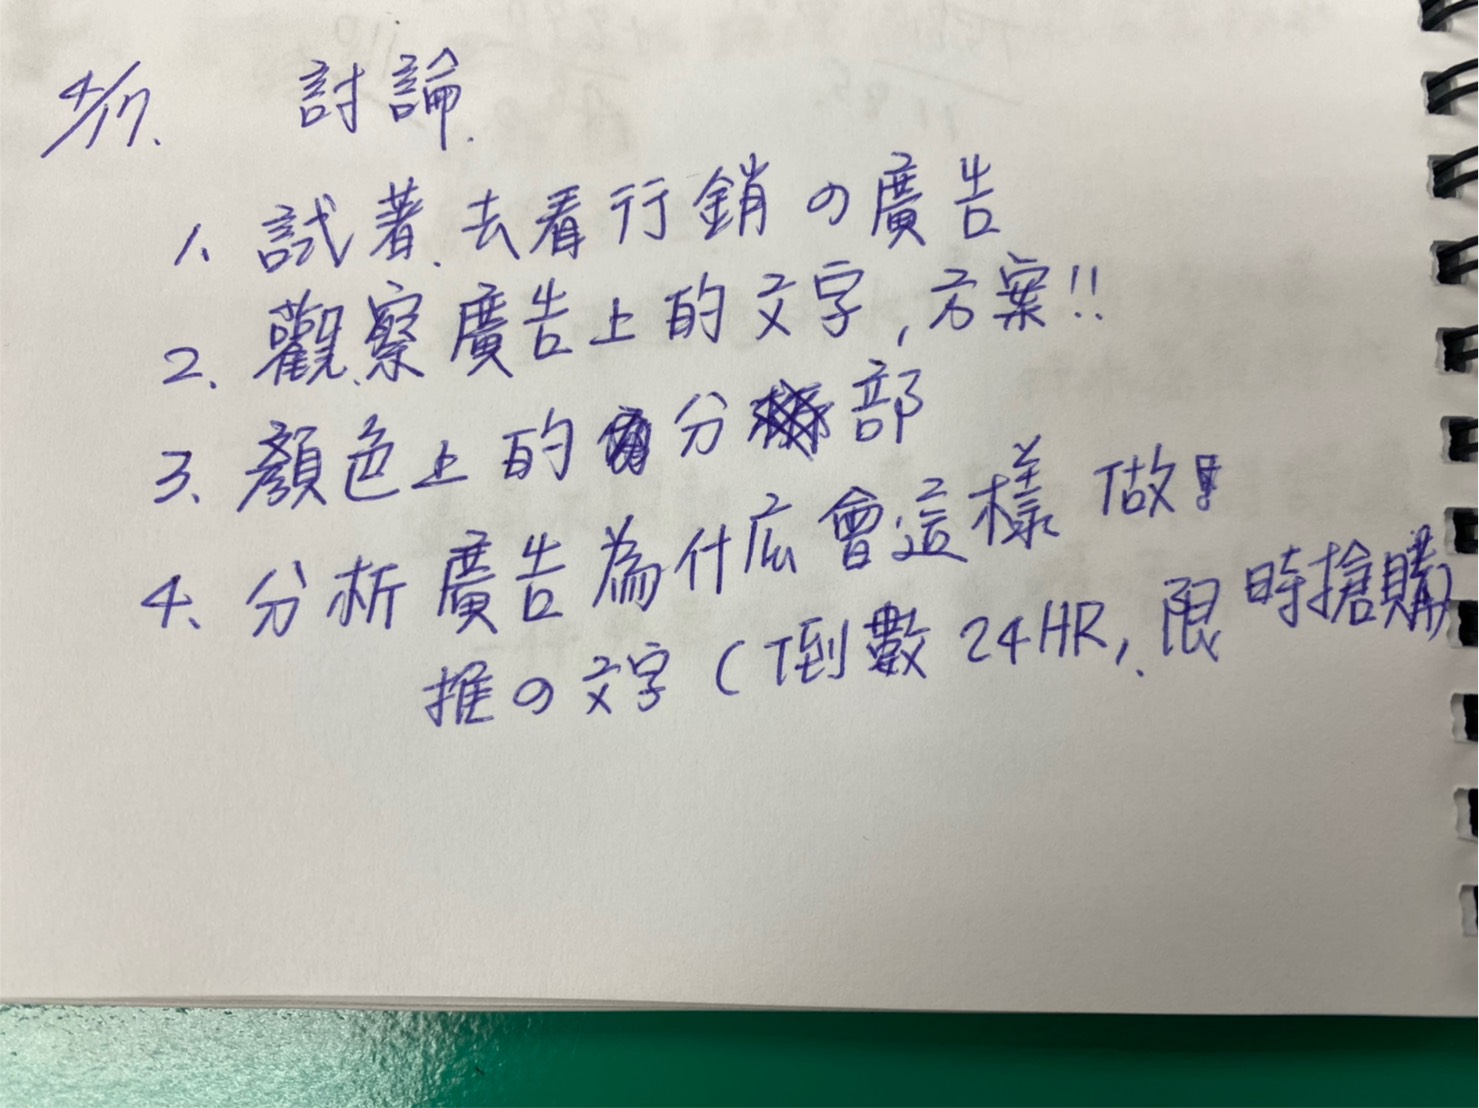 4/17. 討論.
1. 試著去看行銷の廣告
2. 觀察廣告上的文字,方案!!
3. 顏色上的分部
4. 分析廣告為什庅會這樣做!
推の文字(倒數24HR,限時搶購)